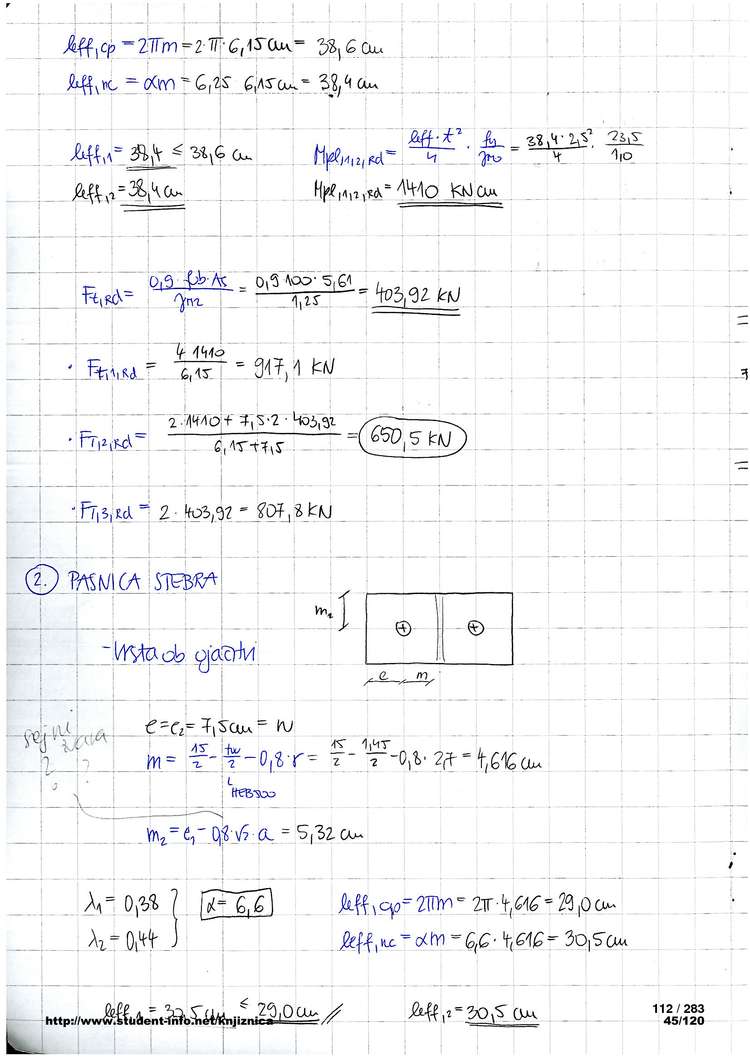 leff,cp = 2πm = 2·π·6,15cm = 38,6 cm
leff,nc = αm = 6,25 6,15cm = 38,4 cm
leff,1 = 38,4 ≤ 38,6 cm
Mpl,1,2,Rd = leff·t²/4 · fy/γM0 = 38,4·2,5²/4 · 23,5/1,0
leff,2 = 38,4cm
Mpl,1,2,Rd = 1410 KNcm
Ft,Rd = 0,9·fub·As/γM2 = 0,9 100·5,61/1,25 = 403,92 KN
· FT,1,Rd = 4 1410/6,15 = 917,1 KN
· FT,2,Rd = 2·1410 + 7,5·2·403,92/6,15+7,5 = 650,5 KN
· FT,3,Rd = 2·403,92 = 807,8 KN
2. PASNICA STEBRA
m₂
- Vrsta ob ojačitvi
e m
e = e₂ = 7,5cm = n
sejni
m = 15/2 - tw/2 - 0,8·r = 15/2 - 1,45/2 - 0,8·2,7 = 4,616 cm
2 ?
HEB500
m₂ = e₁ - 0,8·√2·a = 5,32 cm
λ₁ = 0,38
α = 6,6
leff,cp = 2πm = 2π·4,616 = 29,0 cm
λ₂ = 0,44
leff,nc = αm = 6,6·4,616 = 30,5 cm
leff,1 = 30,5 cm ≤ 29,0 cm
leff,2 = 30,5 cm
112 / 283
http://www.student-info.net/knjiznica
45/120